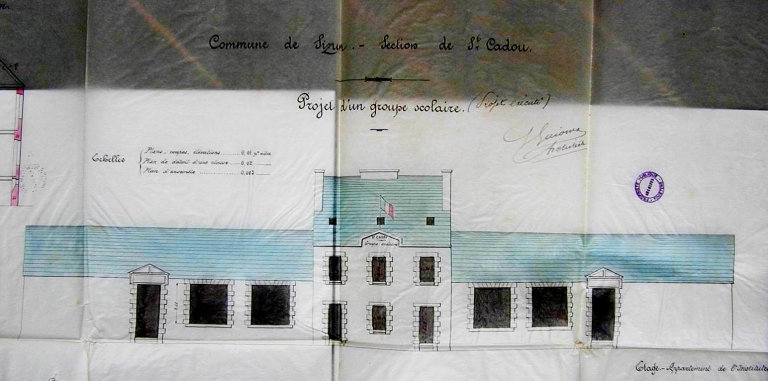 Commune de Sizun. - Section de St Cadou.
Projet d'un groupe scolaire. (Projet exécuté)
Echelles
Plans, coupes, élévations ........ 0,01 p. mètre
Plan de détail d'une classe ........ 0,02
Plan d'ensemble ........ 0,005
Groupe scolaire
Etage.- Appartement de l'Instituteur